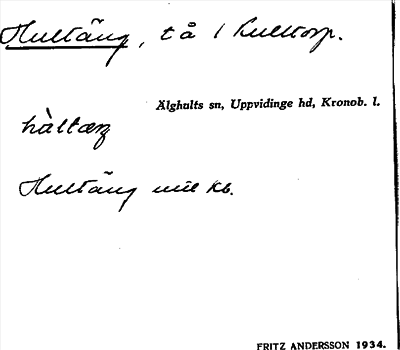 Hultäng, t å 1 Kulltorp.
Älghults sn, Uppvidinge hd, Kronob. l.
hàltæŋ
Hultäng mil kb.
FRITZ ANDERSSON 1934.